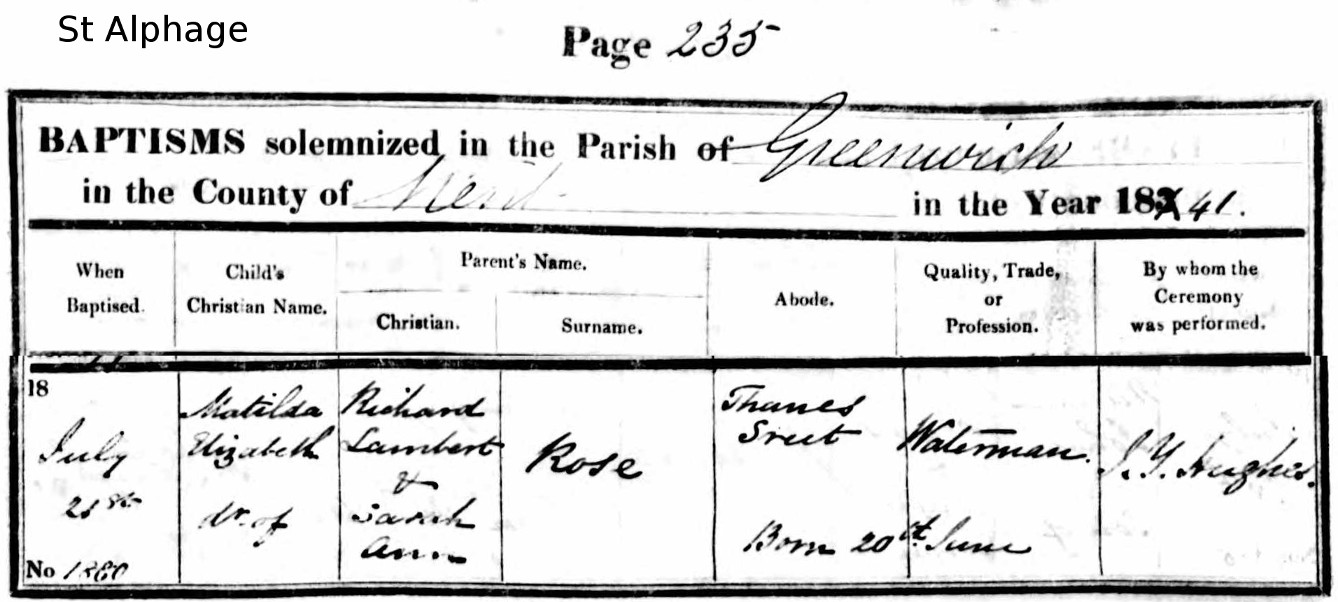 St Alphage
Page 235
BAPTISMS solemnized in the Parish of Greenwich
in the County of Kent in the Year 183 41.
When
Baptised.
Child's
Christian Name.
Parent's Name.
Christian.
Surname.
Abode.
Quality, Trade,
or
Profession.
By whom the
Ceremony
was performed.
18
July
21st
No 1880
Matilda
Elizabeth
dr. of
Richard
Lambert
&
Sarah
Ann
Rose
Thames
Street
Waterman.
Born 20th June
J. Y. Hughes.